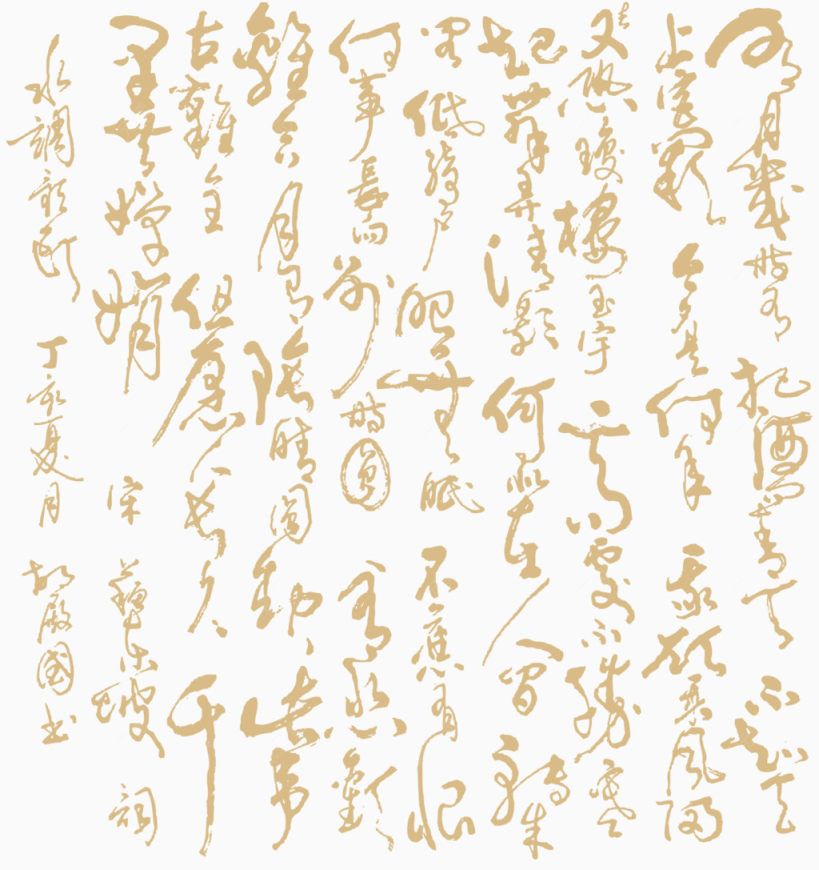 明月幾時有 把酒問青天 不知天
上宮闕 今夕是何年 我欲乘風歸
去又恐瓊樓玉宇 高處不勝寒
起舞弄清影 何似在人間 轉朱
閣 低綺戶 照無眠 不應有恨
何事長向別時圓 人有悲歡
離合月有陰晴圓缺 此事
古難全 但願人長久 千
里共嬋娟 宋 蘇東坡 詞
水調歌頭 丁亥夏月 胡殿國書